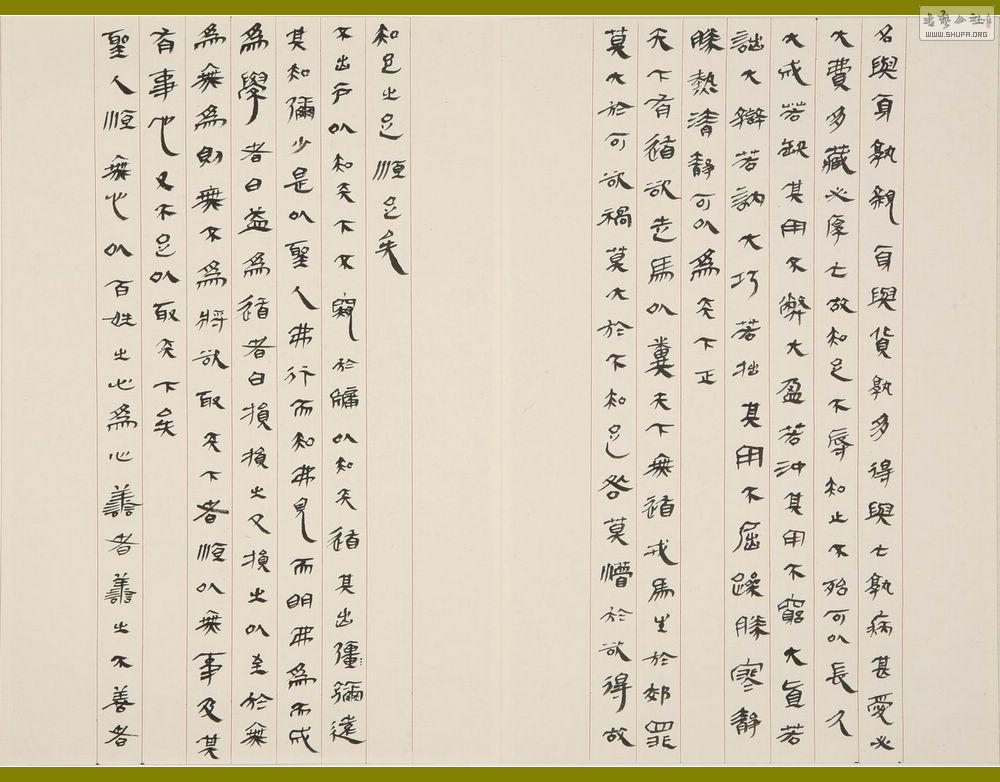 名與身孰親身與貨孰多得與亡孰病甚愛必
大費多藏必厚亡故知足不辱知止不殆可以長久
大成若缺其用不弊大盈若沖其用不窮大直若
詘大辯若訥大巧若拙其用不屈躁勝寒靜
勝熱清靜可以為天下正
天下有道卻走馬以糞天下無道戎馬生於郊罪
莫大於可欲禍莫大於不知足咎莫憯於欲得故
知足之足恆足矣
不出戶以知天下不窺於牖以知天道其出彊彌遠
其知彌少是以聖人弗行而知弗見而明弗為而成
為學者日益為道者日損損之又損之以至於無
為無為則無不為將欲取天下者恆以無事及其
有事也又不足以取天下矣
聖人恆無心以百姓之心為心善者善之不善者
書藝公社
WWW.SHUFA.ORG